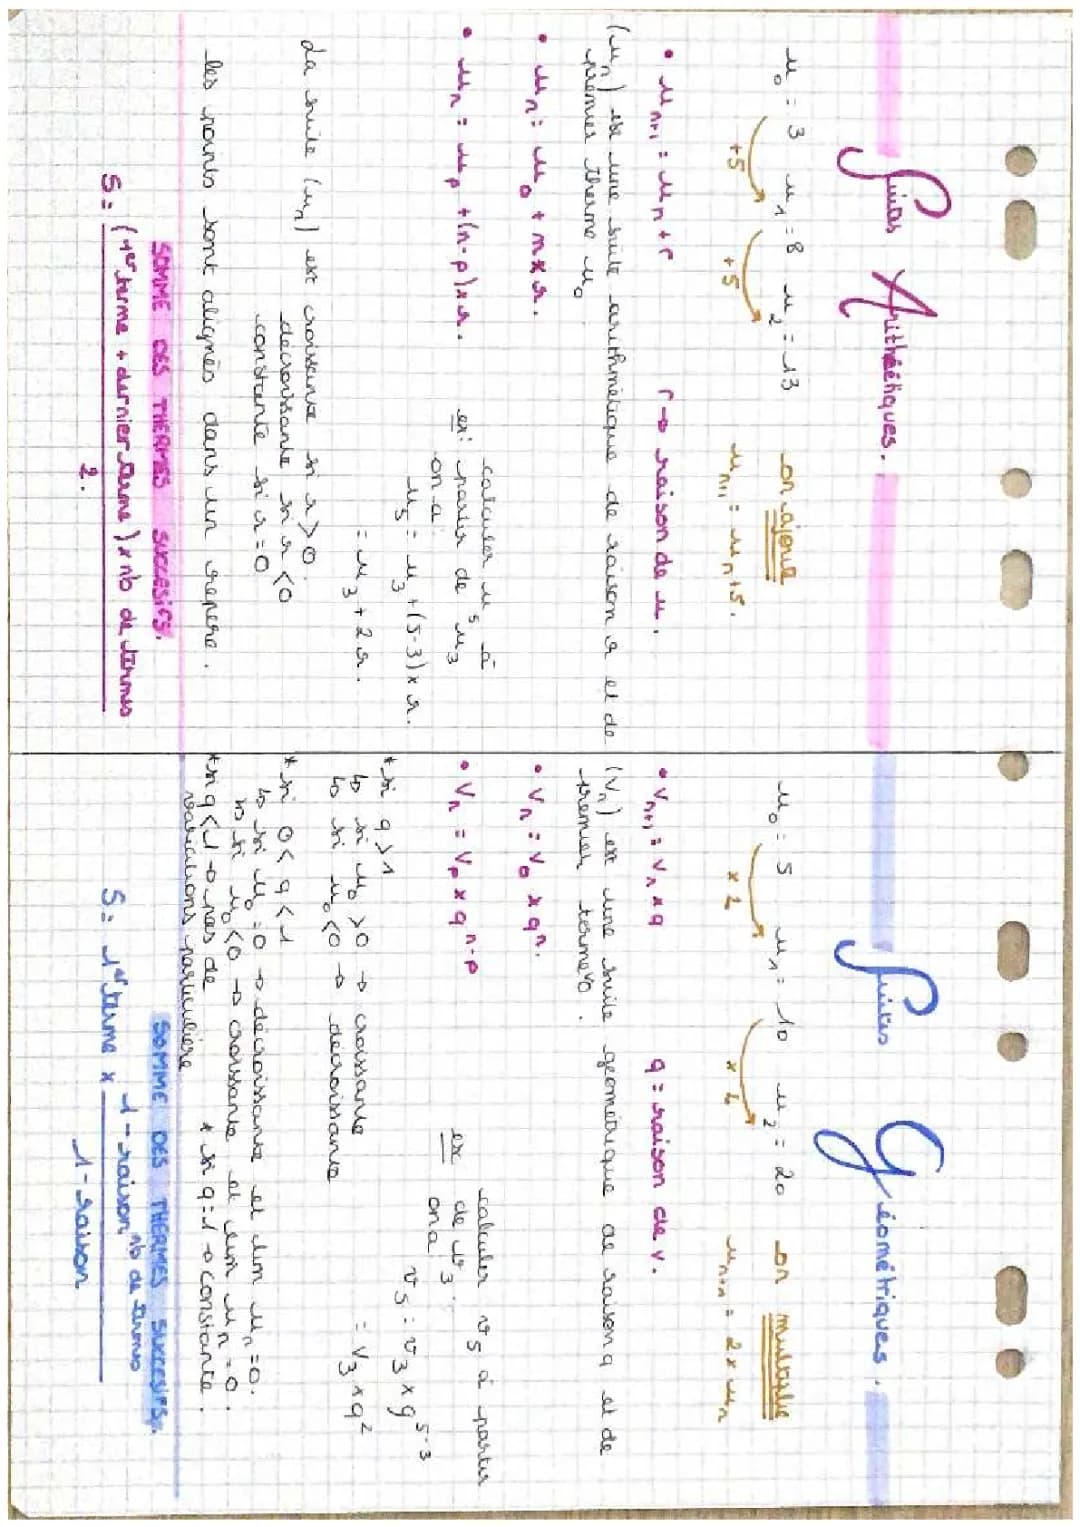 Suites Arithétiques.
u0 = 3 u1 = 8 u2 = 13 on ajoute
+5 +5 un+1 = un+5.
• un+1 = un+r r → raison de u.
(un) est une suite arithmétique de raison r et de
premier therme u0
• un = u0 + n×r.
• un = up +(n-p)×r. ex: calculer u5 à
partir de u3
on a
u5 = u3 +(5-3)×r.
= u3 + 2r.
La suite (un) est croissante si r>0
décroissante si r<0
constante si r=0
les points sont alignés dans un repère.
SOMME DES THERMES SUCCESIFS.
S= (1er terme + dernier terme) × nb de termes
2.
Suites Géométriques.
u0 = 5 u1 = 10 u2 = 20 on multiplie
×2 ×2 un+1 = 2×un
• Vn+1 = Vn×q q = raison de v.
(Vn) est une suite géométrique de raison q et de
premier terme v0.
• Vn = V0 × qn.
• Vn = Vp × qn-p ex calculer v5 à partir
de v3.
on a
v5 = v3 × q5-3
= V3 × q2
* si q>1
↳ si u0 >0 → croissante
↳ si u0 <0 → décroissante
* si 0<q<1
↳ si u0 =0 → décroissante et lim un=0.
↳ si u0 <0 → croissante et lim un=0.
* si q<1 → pas de * si q=1 → constante.
variations particulière
SOMME DES THERMES SUCCESIFS.
S= 1er terme × 1-raison nb de termes
1-raison